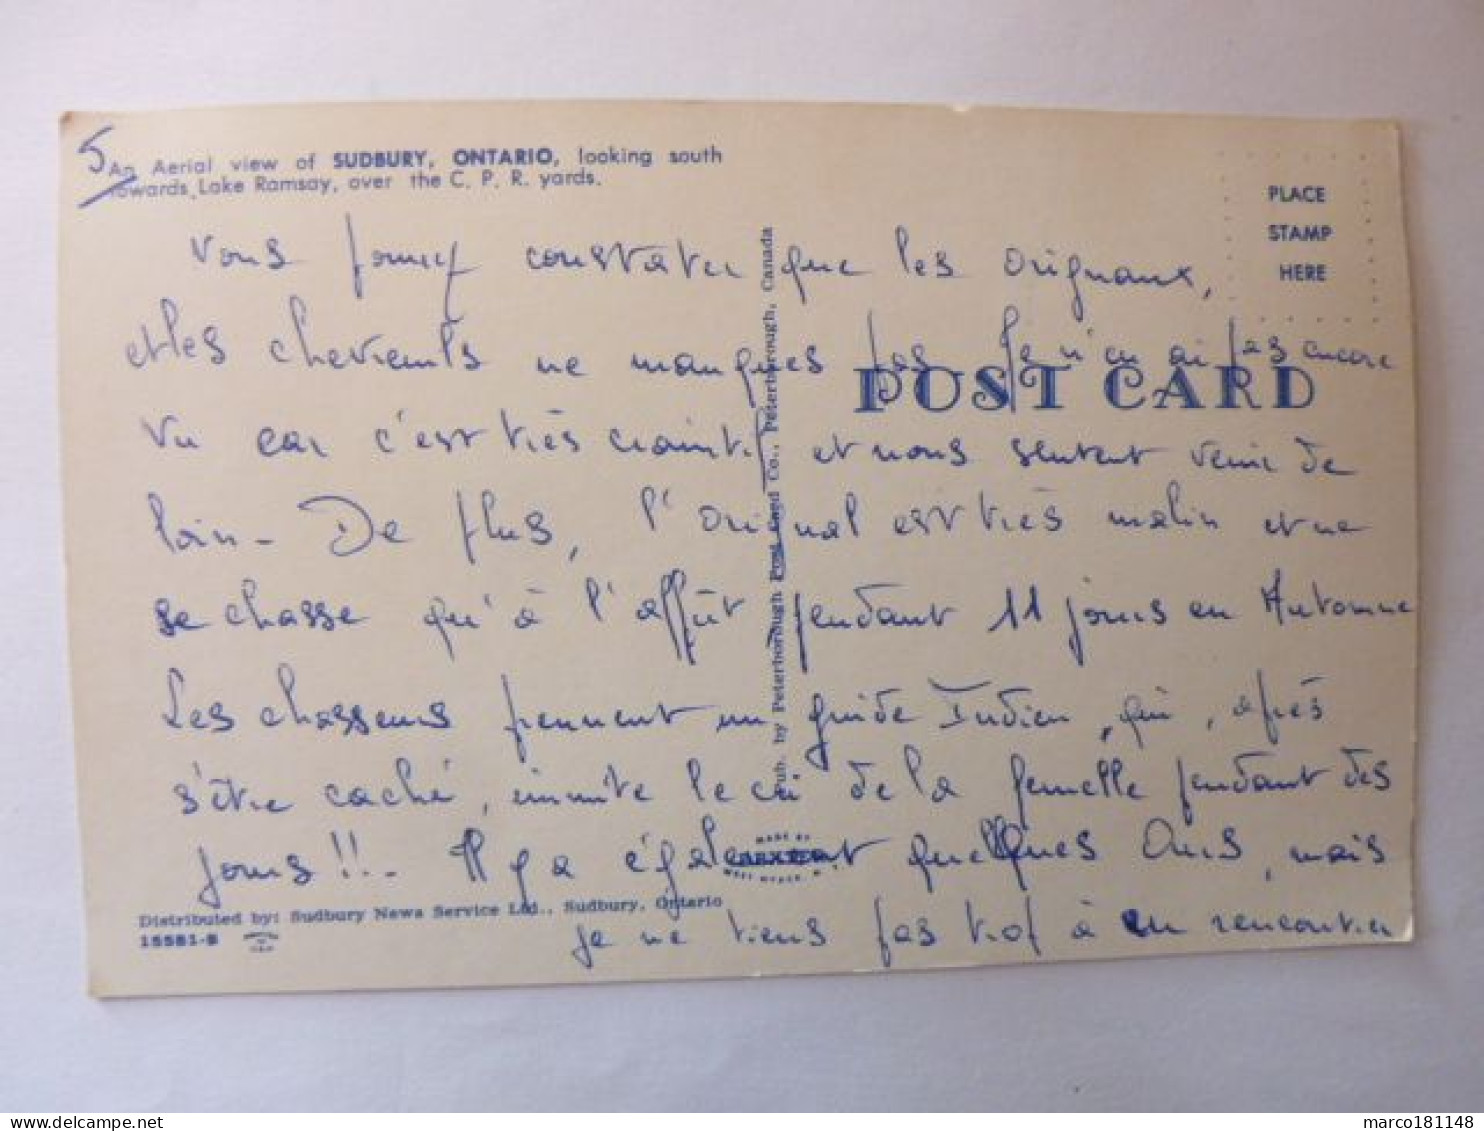 5
An Aerial view of SUDBURY, ONTARIO, looking south
towards Lake Ramsay, over the C. P. R. yards.
PLACE
STAMP
HERE
POST CARD
Vous pouvez constater que les Orignaux,
et les chevreuils ne manques pas. Je n'en ai pas encore
vu car c'est très craintif et nous sentent venir de
loin - De plus, l'Orignal est très malin et ne
se chasse qu'à l'affût pendant 11 jours en Automne
Les chasseurs prennent un guide Indien, qui, après
s'être caché, immite le cri de la femelle pendant des
jours !!. Il y a également quelques Ours, mais
je ne tiens pas trop à en rencontrer
Pub. by Peterborough Post Card Co., Peterborough, Canada
MADE BY
DEXTER
WEST NYACK, N. Y.
Distributed by: Sudbury News Service Ltd., Sudbury, Ontario
15581-B
marco181148